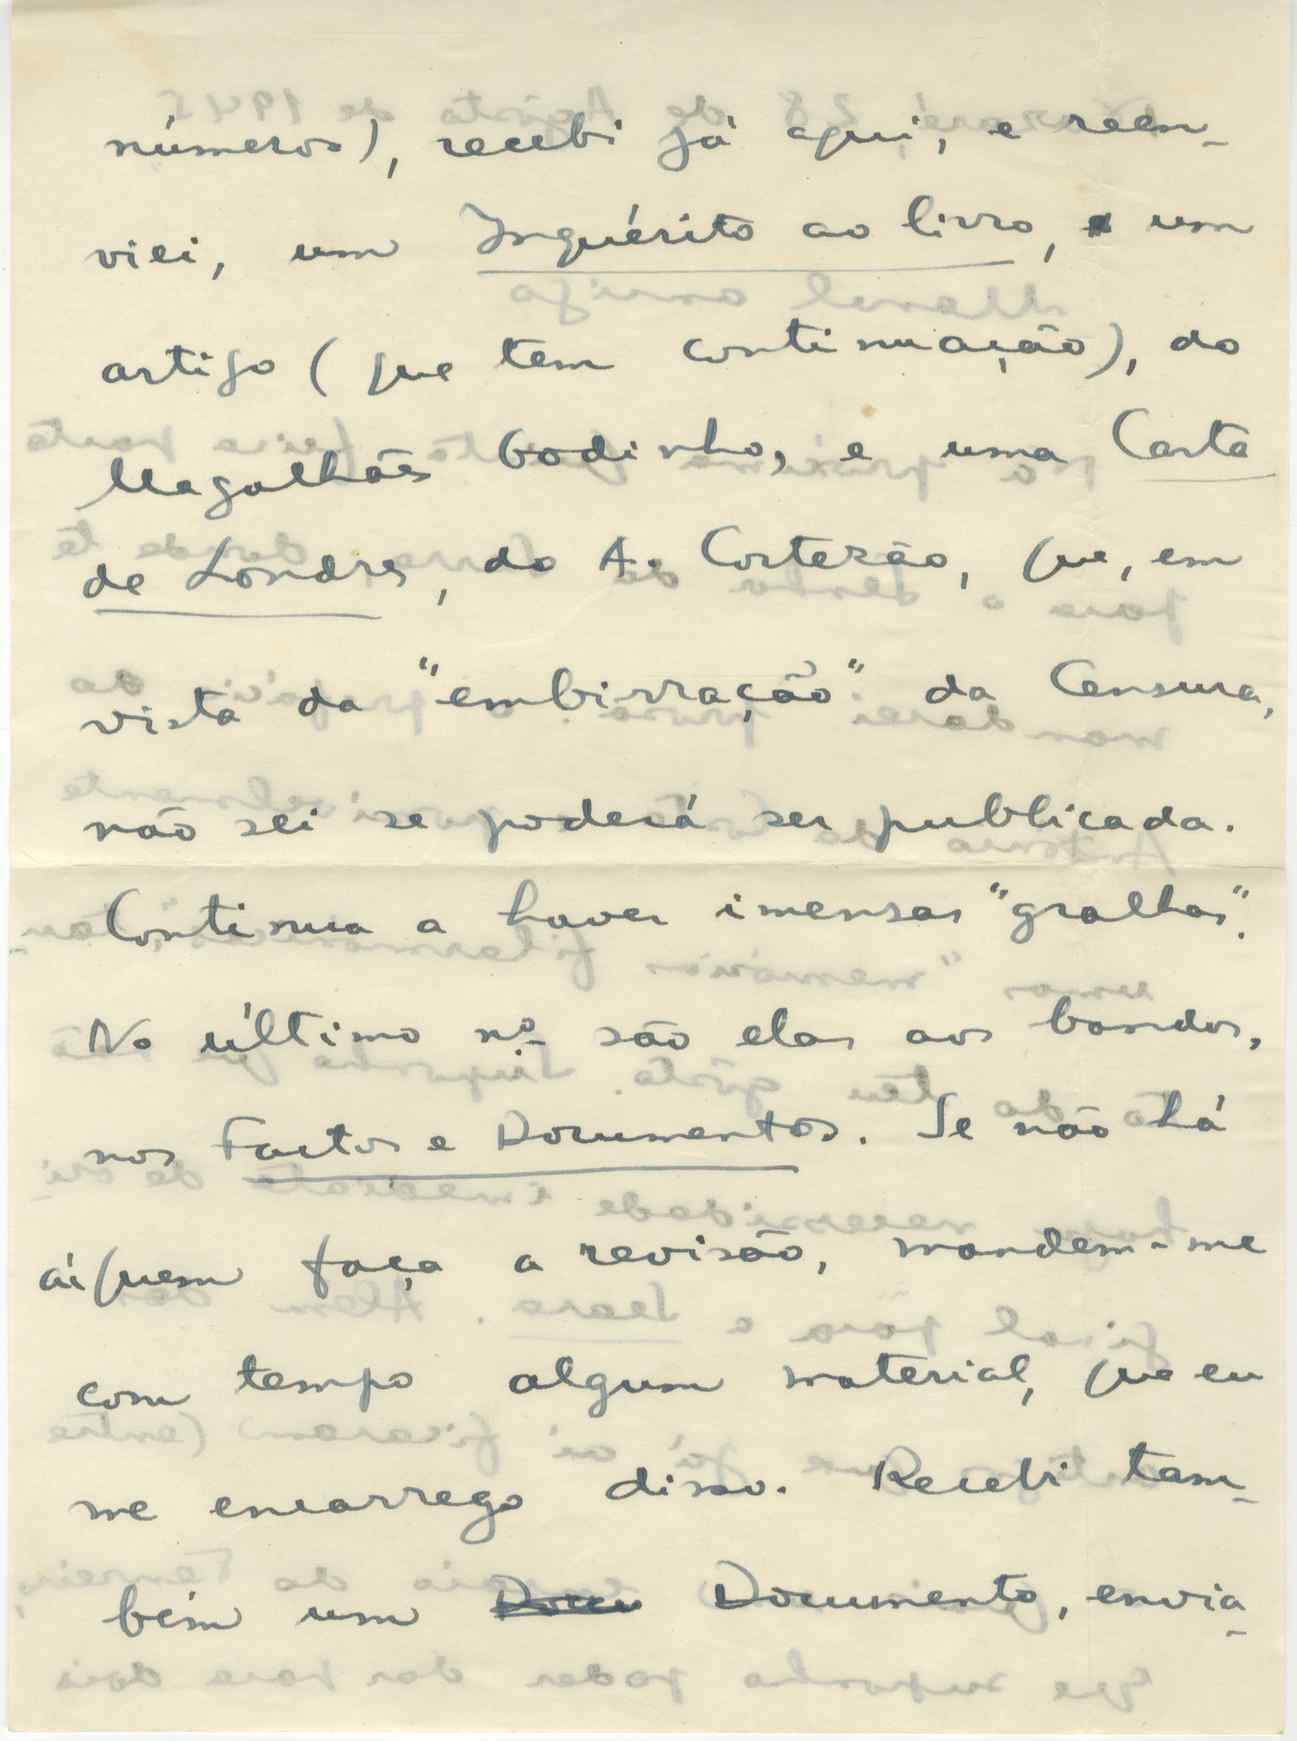 números), recebi já aqui, e reen-
viei, um Inquérito ao livro, um
artigo (que tem continuação), do
Magalhães Godinho, e uma Carta
de Londres, do A. Cortezão, que, em
vista da "embirração" da Censura,
não sei se poderá ser publicada.
Continua a haver imensas "gralhas".
No último nº são elas aos bandos,
nos Factos e Documentos. Se não há
aí quem faça a revisão, mandem-me
com tempo algum material, que eu
me encarrego disso. Recebi tam-
bém um Docu Documento, envia-